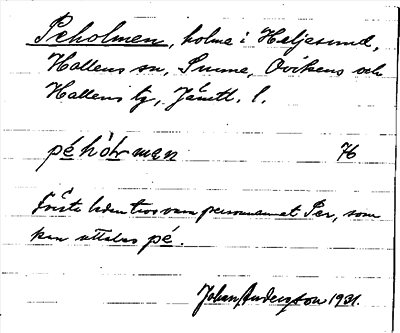 Peholmen, holme i Haljesund,
Hallens sn, Sunne, Ovikens och
Hallens tg, Jämtl. l.
péhòlrman 76
Första leden tros vara personnamnet Per, som
kan uttalas pé.
Johan Anderzson 1931.